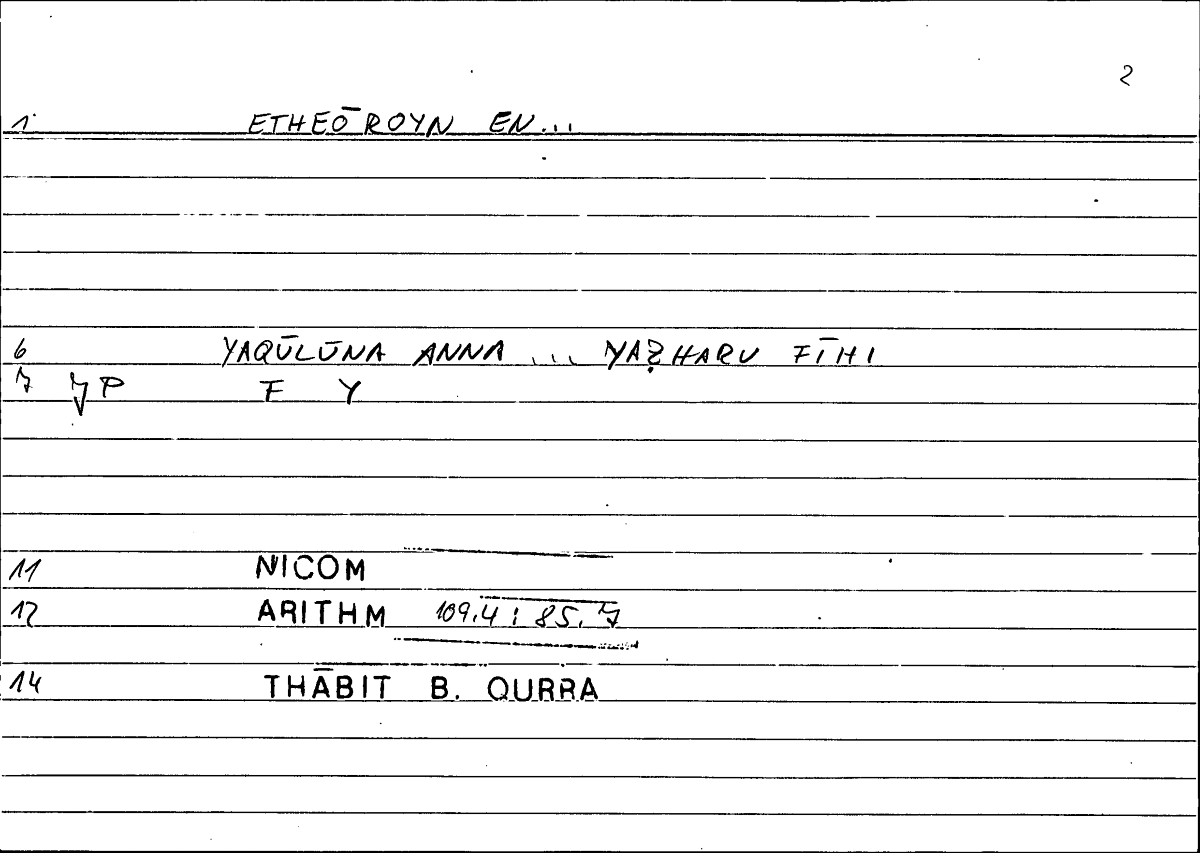 2
1 ETHEŌROYN EN...
6 YAQŪLŪNA ANNA ... YAẒHARU FĪHI
7 7P F Y
11 NICOM
12 ARITHM 109.4 : 85.7
14 THĀBIT B. QURRA